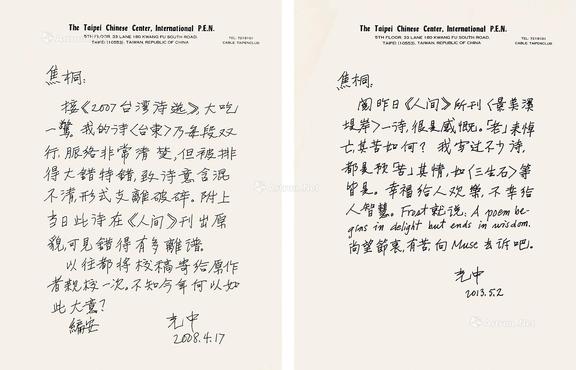 The Taipei Chinese Center, International P.E.N.
5TH FLOOR, 33 LANE 180 KWANG FU SOUTH ROAD,
TAIPEI (10553), TAIWAN, REPUBLIC OF CHINA
TEL: 7219101
CABLE: TAIPENCLUB
焦桐:
接《2007台湾诗选》大吃
一驚，我的诗〈台東〉乃每段双
行，脈络非常清楚，但被排
得大错特错，致诗意含混
不清，形式支離破碎。附上
当日此诗在《人间》刊出原
貌，可見错得有多離譜。
以往都将校稿寄给原作
者親校一次。不知今年何以如
此大意？
編安
光中
2008.4.17
The Taipei Chinese Center, International P.E.N.
5TH FLOOR, 33 LANE 180 KWANG FU SOUTH ROAD,
TAIPEI (10553), TAIWAN, REPUBLIC OF CHINA
TEL: 7219101
CABLE: TAIPENCLUB
焦桐:
阅昨日《人间》所刊〈景美溪
堤岸〉一诗，很是感慨。「老」来悼
亡，其苦如何？我写过不少诗，
都是预「苦」其情，如〈三生石〉等
皆是。幸福给人欢樂，不幸给
人智慧。Frost就说，A poem be-
gins in delight but ends in wisdom.
尚望節哀，有苦，向Muse去訴吧。
光中
2013.5.2